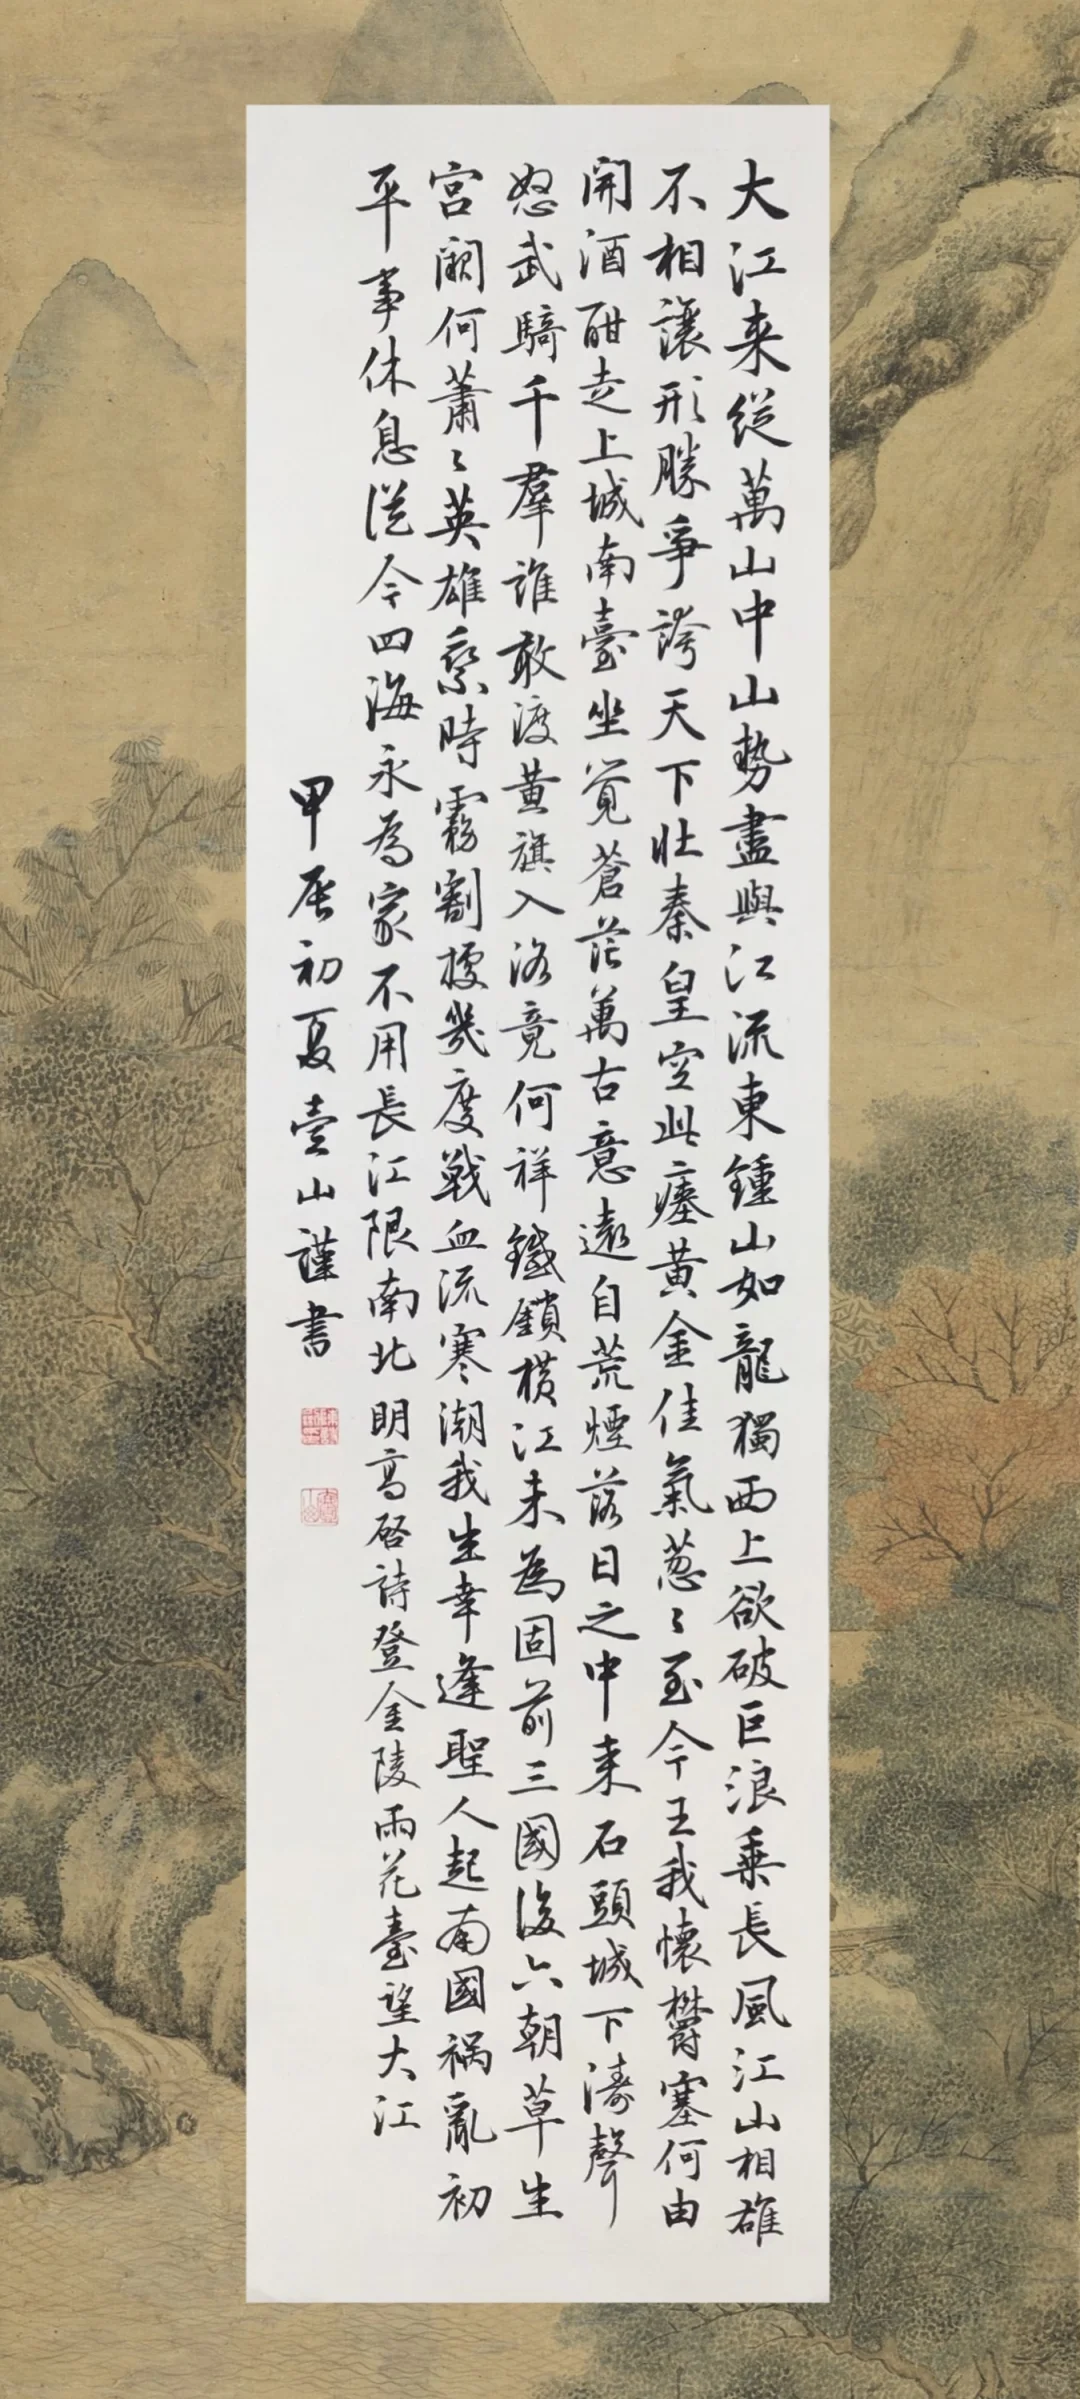 大江来從萬山中山勢盡與江流東鍾山如龍獨西上欲破巨浪乗長風江山相雄
不相讓形勝爭誇天下壯秦皇空此瘞黄金佳氣葱〻至今王我懷欎塞何由
開酒酣走上城南臺坐覚蒼茫萬古意遠自荒煙落日之中来石頭城下濤聲
怒武騎千羣誰敢渡黄旗入洛竟何祥鐵鎖横江未為固前三國後六朝草生
宫闕何蕭〻英雄乗時務割據幾度戰血流寒潮我生幸逢聖人起南國禍亂初
平事休息從今四海永為家不用長江限南北明高啓詩登金陵雨花臺望大江
甲辰初夏壹山謹書